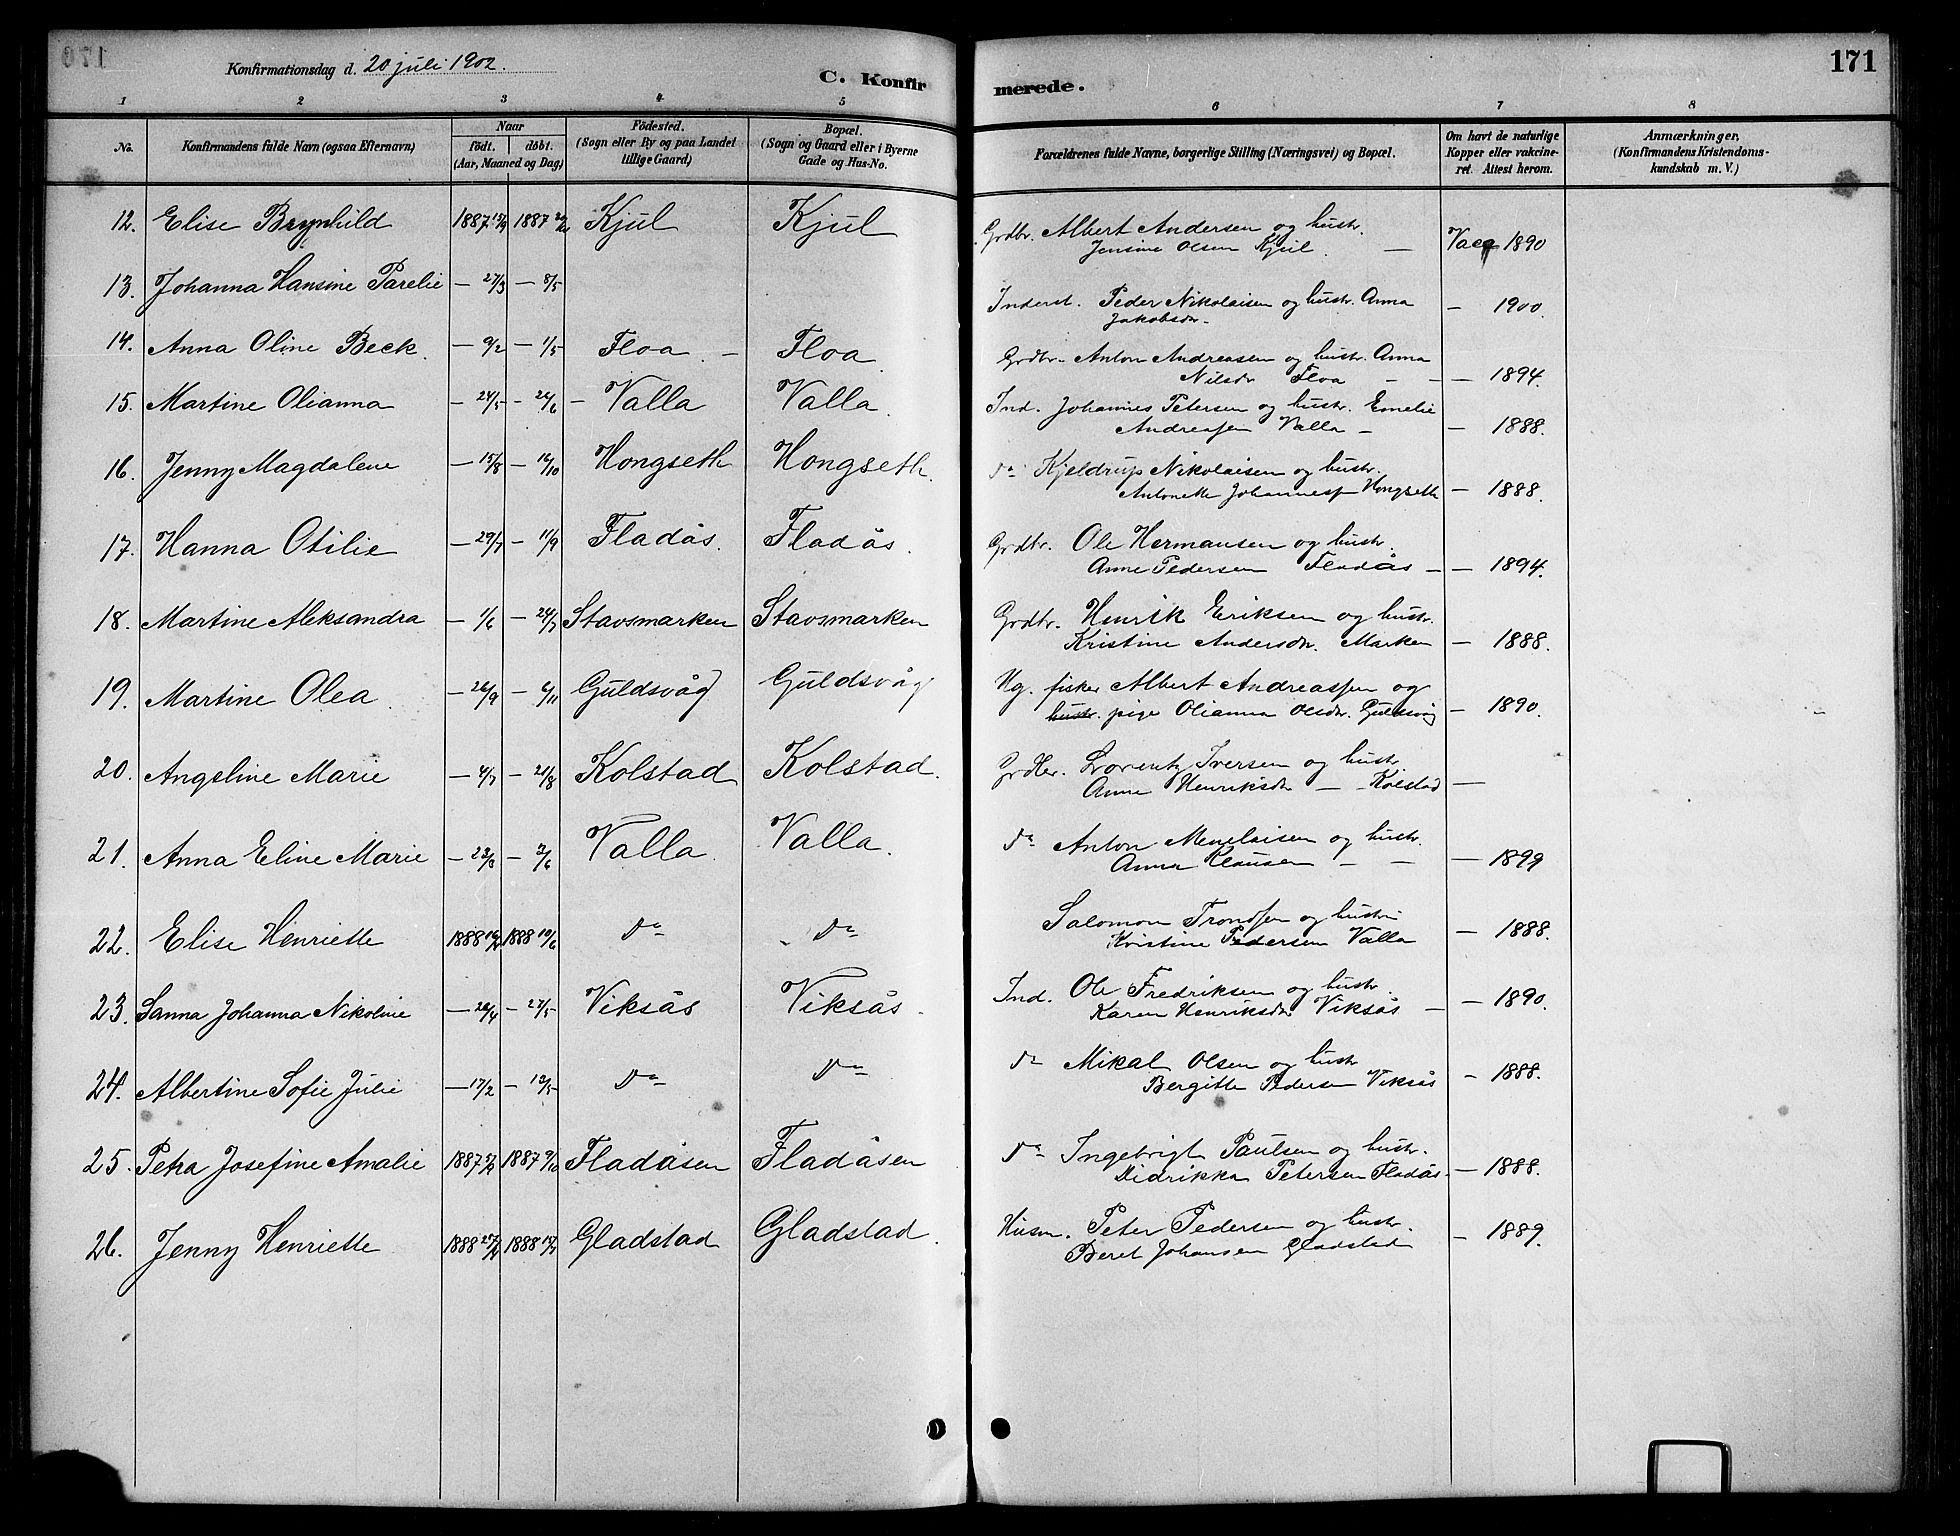 Konfirmationsdag d. 20 juli 1902.
C. Konfir
merede.
171
1 2 3 4 5
6 7 8
No.
Konfirmandens fulde Navn (ogsaa Efternavn)
Naar
født. døbt.
(Aar, Maaned og Dag)
Fødested.
(Sogn eller By og paa Landet
tillige Gaard)
Bopæl.
(Sogn og Gaard eller i Byerne
Gade og Hus-No.
Forældrenes fulde Navne, borgerlige Stilling (Næringsvei) og Bopæl.
Om havt de naturlige
Kopper eller vakcine-
ret. Attest herom.
Anmærkninger.
(Konfirmandens Kristendoms-
kundskab m. V.)
12. Elise Brynhild 1887 1887 Kjul Kjul
Grdbr. Albert Andersen og hustr.
Jensine Olsen Kjul. — Vacc 1890
13. Johanna Hansine Parelie — 27/3 — 8/5
Inderst. Peder Nikolaisen og hustr. Anna
Jakobsdr. — 1900.
14. Anna Oline Beck. — 9/2 — 1/5 Floa — Floa
Grdbr. Anton Andreasen og hustr. Anna
Nilsdr Floa — — — 1894.
15. Martine Olianna — 24/5 — 26/6 — Valla Valla.
Ind. Johannes Petersen og hustr. Emelie
Andreassen Valla — — 1888.
16. Jenny Magdalene — 15/8 — 16/10 Hongseth Hongseth.
do Kjeldrup Nikolaisen og hustr.
Antonette Hongseth — 1888.
17. Hanna Otilie — 29/7 — 11/9 Fladås. Fladås.
Grdbr. Ole Hermansen og hustr.
Anne Pedersen Fladås — — 1894.
18. Martine Aleksandra — 1/6 — 24/7 Stavsmarken Stavsmarken
Grdbr. Henrik Eriksen og hustr.
Kristine Andersdr. Marken — 1888.
19. Martine Olea. — 26/9 — 6/11 Guldsvåg Guldsvåg
Ug. fisker Albert Andreassen og
hustr. pige Olianna Olsdr. Guldsvåg — 1890.
20. Angeline Marie — 4/7 — 21/8 Kolstad Kolstad.
Lorentz Iversen og hustr.
Anne Henriksdr — Kolstad —
21. Anna Eline Marie — 23/3 — 3/6 Valla. Valla.
do Anton Menelaisen og hustr.
Anna Klausen — — — 1899
22. Elise Henriette 1888 1888 10/6 do do
Salomon Trondsen og hustr
Kristine Pedersen Valla — 1888.
23. Sanna Johanna Nikoline — 26/4 — 27/5 Viksås Viksås.
Ind. Ole Fredriksen og hustr.
Karen Henriksdr Viksås — — 1890.
24. Albertine Sofie Julie — 17/2 — 13/5 do do
do Mikal Olsen og hustr
Bergitte Pedersen Viksås — 1888.
25. Petra Josefine Amalie 1887 1887 9/10 Fladåsen Fladåsen
do Ingebrigt Paulsen og hustr.
Didrikka Petersen Fladås — 1888.
26. Jenny Henriette 1888 1888 Gladstad Gladstad.
Husm. Peter Pedersen og hustr.
Beret Johansen Gladstad — 1889.